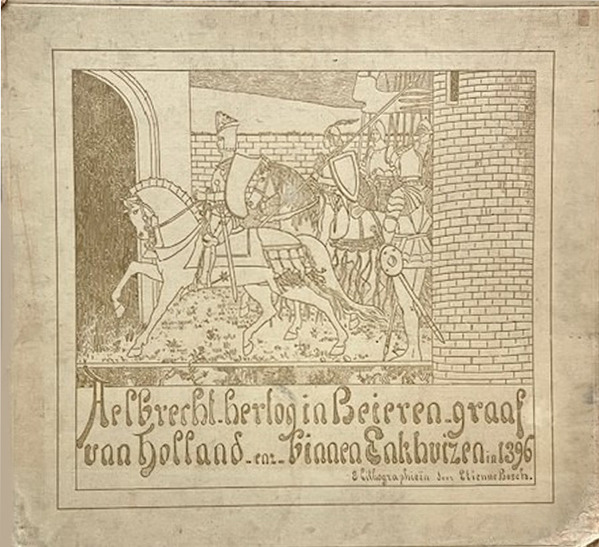 Aelbrecht-hertog in Beieren-graaf
van Holland-enz-binnen Enkhuizen in 1396
8 lithographieën door Etienne Bosch.